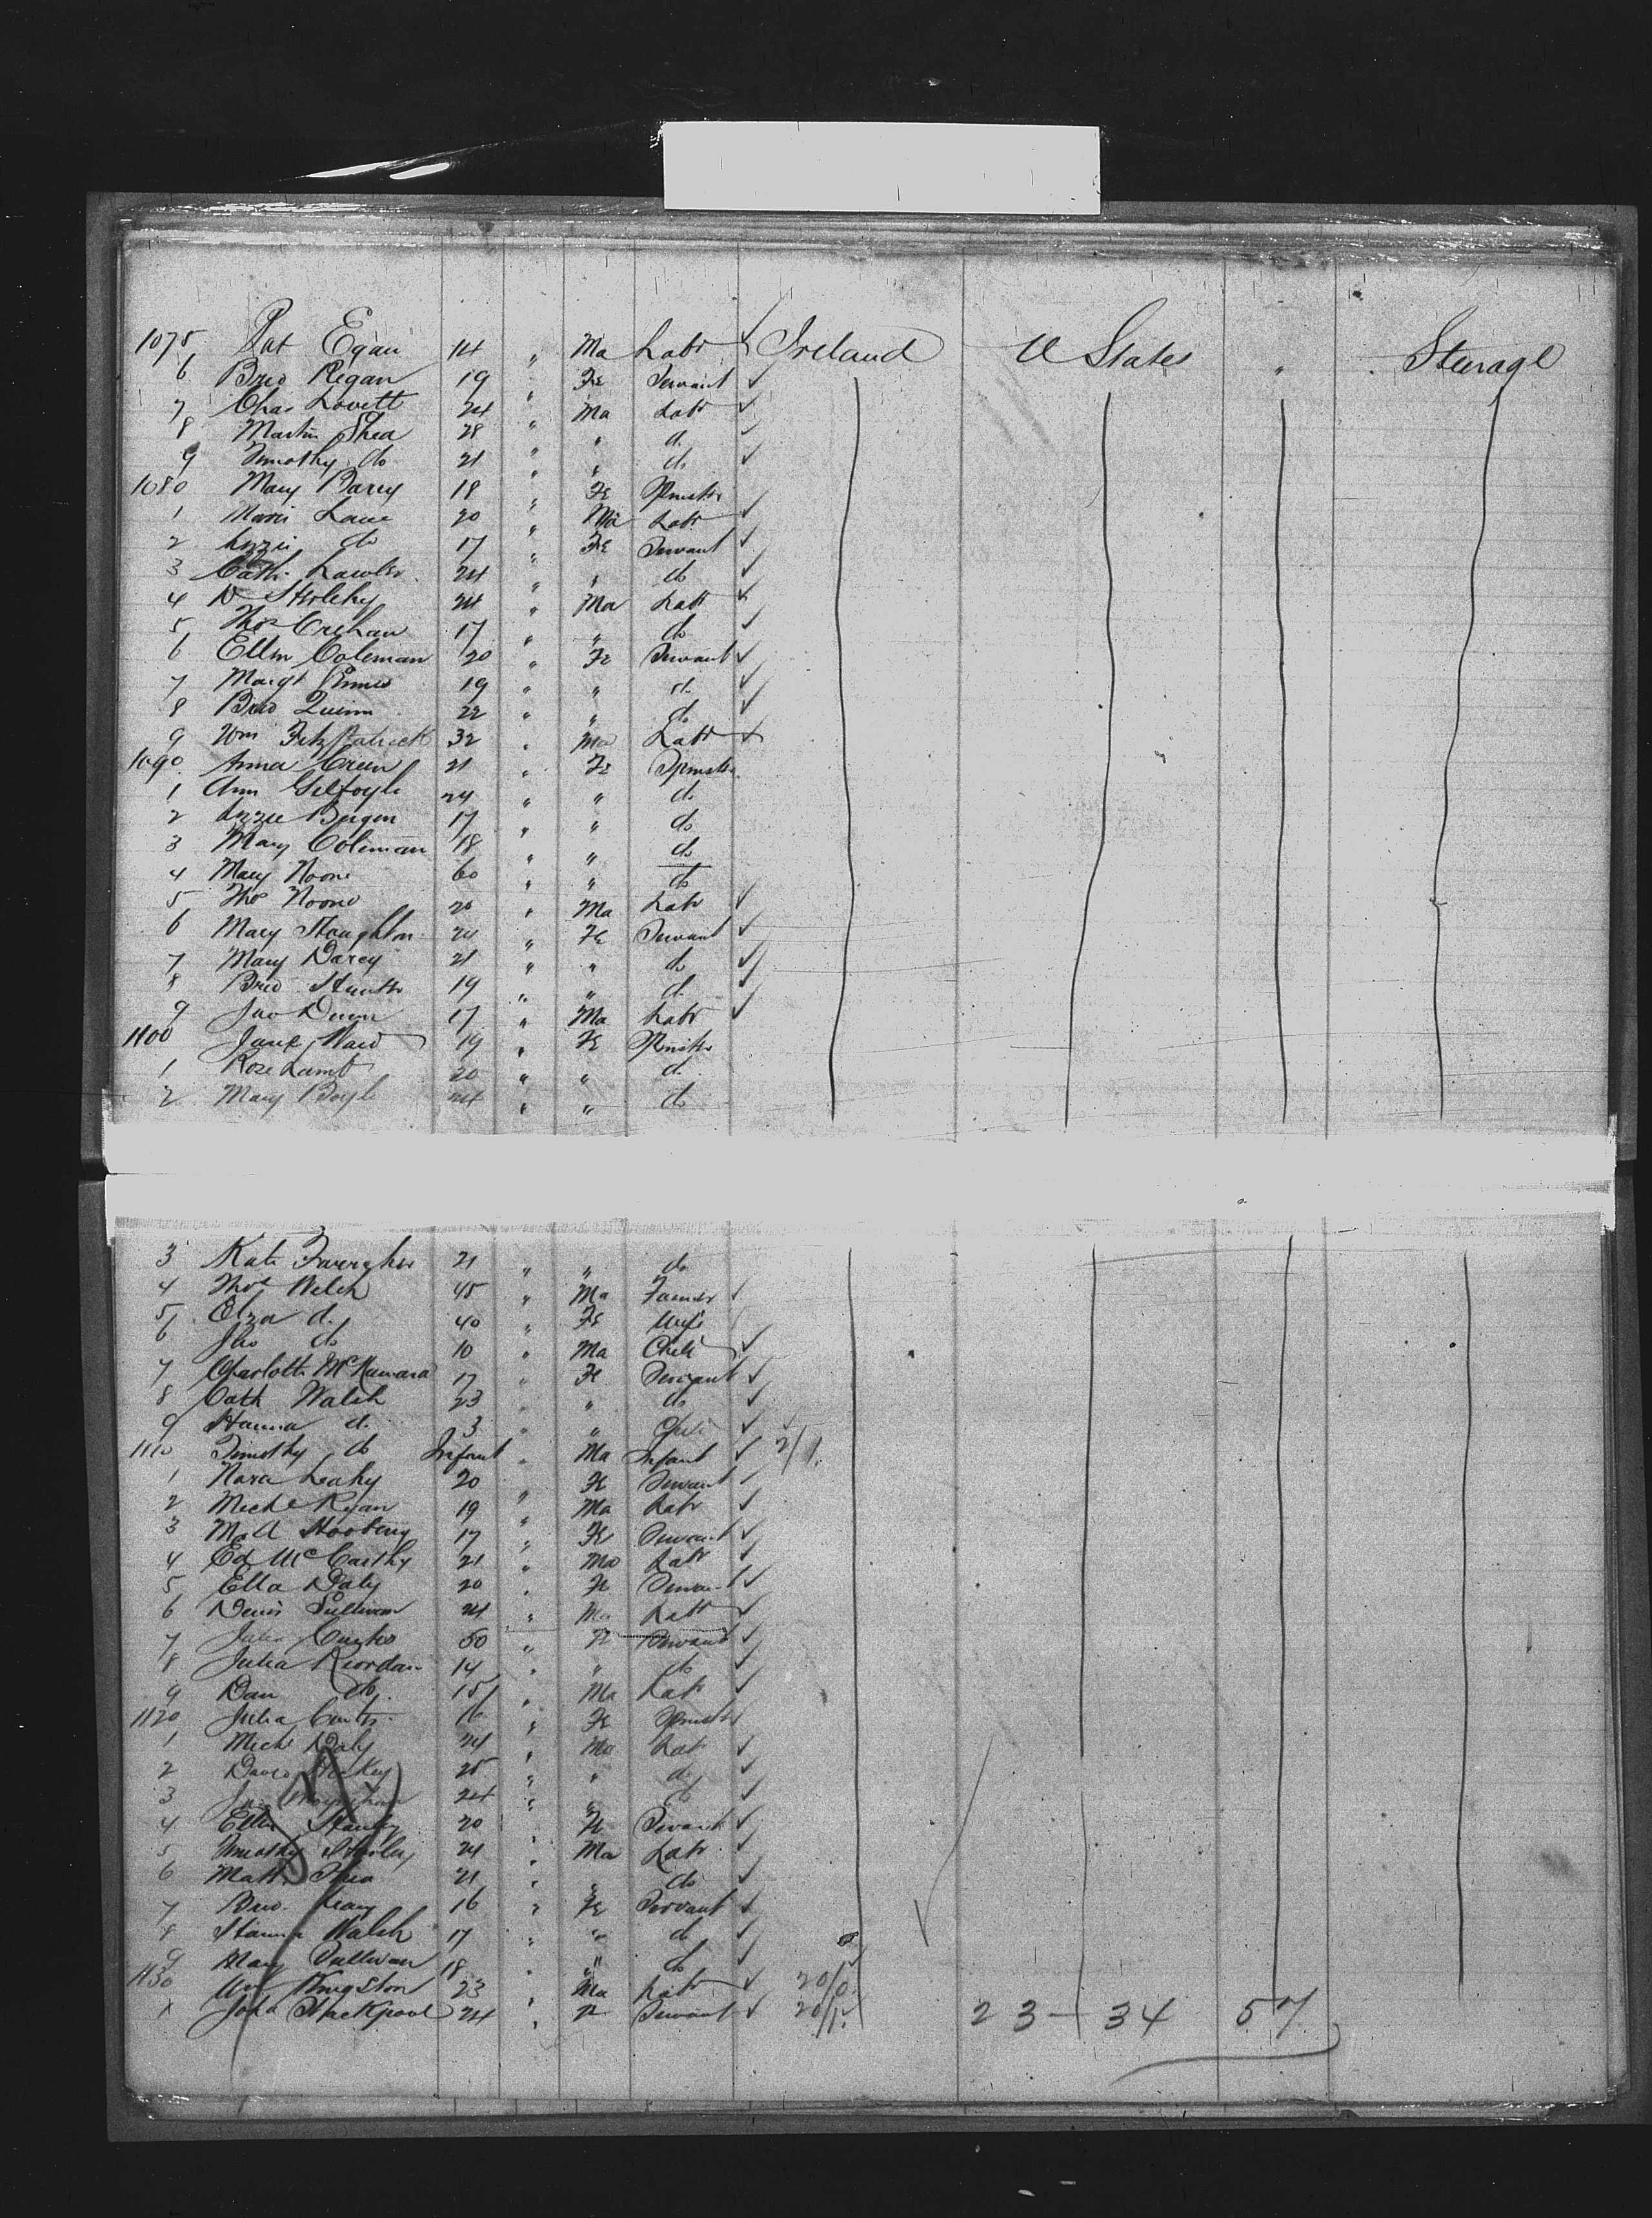 1075 Pat Egan 14 " Ma Labr ✓ Ireland U States " Steerage
6 Brid Regan 19 " Fe Servant ✓
7 Chas Lovett 24 " Ma Labr ✓
8 Martin Shea 28 " " do ✓
9 Timothy do 21 " " do ✓
1080 Mary Barry 18 " Fe Spinster
1 Lane 20 " Ma Labr ✓
2 Lizzie do 17 " Fe Servant ✓
3 Cath Lawler 24 " " do ✓
4 24 " Ma Labr ✓
5 Thos Crehan 17 " " do ✓
6 Ellen Coleman 20 " Fe Servant ✓
7 Margt 19 " " do ✓
8 Brid Quinn 22 " " do ✓
9 Wm Fitzpatrick 32 " Ma Labr ✓
1090 Anna Green 21 " Fe Spinster
1 Ann Gilfoyle 24 " " do
2 Lizzie Bergen 17 " " do
3 Mary Coleman 18 " " do
4 Mary Noone 60 " " do
5 Thos Noone 20 " Ma Labr ✓
6 Mary Haughton 24 " Fe Servant ✓
7 Mary Darcy 21 " " do ✓
8 Brid Hunter 19 " " do ✓
9 Jno Dunn 17 " Ma Labr ✓
1100 Jane Ward 19 " Fe Spinster
1 Rose Lamb 20 " " do
2 Mary Boyle 24 " " do
3 Kate 21 " " do
4 Thos Welch 45 " Ma Farmer ✓
5 Eliza do 40 " Fe Wife
6 Jno do 10 " Ma Child ✓
7 Charlotte McNamara 17 " Fe Servant ✓
8 Cath Walsh 23 " " do ✓
9 Hanna do 3 " " Child ✓
1110 Timothy do Infant " Ma Infant ✓ 2/1
1 Nora Leahy 20 " Fe Servant ✓
2 Michl Ryan 19 " Ma Labr ✓
3 M A 17 " Fe Servant ✓
4 Ed McCarthy 21 " Ma Labr ✓
5 Ella Daly 20 " Fe Servant ✓
6 Denis Sullivan 24 " Ma Labr ✓
7 Julia 50 " Fe Servant ✓
8 Julia Riordan 14 " " do ✓
9 Dan do 15 " Ma Labr ✓
1120 Julia 16 " Fe Spinster
1 Michl Daly 24 " Ma Labr ✓
2 David Hickey 25 " " do ✓
3 24 " " do ✓
4 Ellen 20 " Fe Servant ✓
5 Timothy 24 " Ma Labr ✓
6 Matt Shea 21 " " do ✓
7 Brid Leary 16 " Fe Servant ✓
8 Hanna Walsh 17 " " do ✓
9 Mary Sullivan 18 " " do ✓
1130 Wm Kingston 23 " Ma Labr ✓ 20/0
1 Joha Stackpool 24 " Fe Servant ✓ 20/1
23 - 34 57